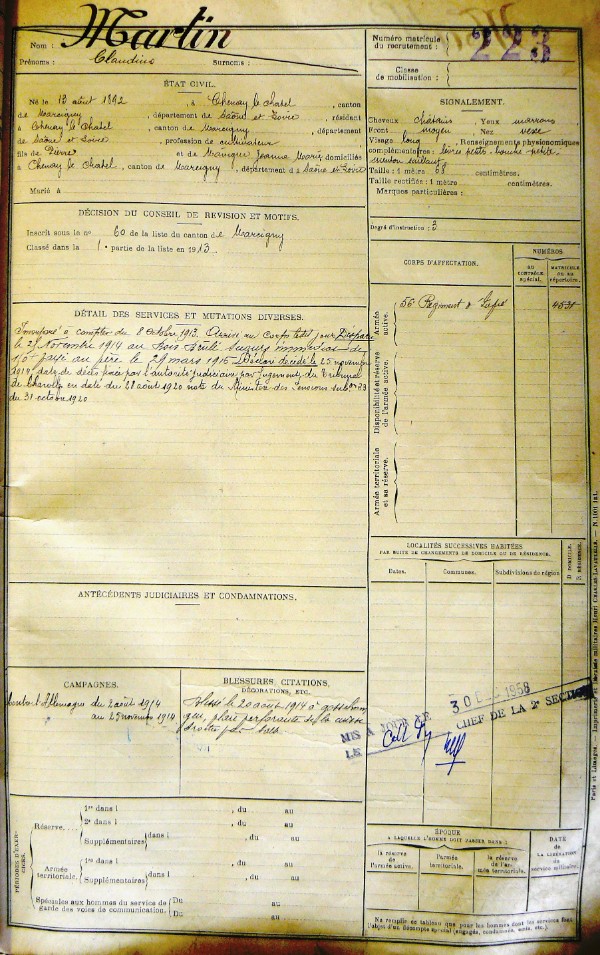 Nom : Martin
Prénoms : Claudius Surnoms :
Numéro matricule
du recrutement : 223
Classe
de mobilisation :
ÉTAT CIVIL.
Né le 13 août 1892, à Chenay le Chatel, canton
de Marcigny, département de Saône et Loire, résidant
à Chenay le Chatel, canton de Marcigny, département
de Saône et Loire, profession de cultivateur
fils de Pierre et de Jeanne Marie domiciliés
à Chenay le Chatel, canton de Marcigny, département d Saône et Loire
Marié à
SIGNALEMENT.
Cheveux châtains Yeux marrons
Front moyen Nez
Visage long, Renseignements physionomiques
complémentaires : bouche petite
menton saillant
Taille : 1 mètre 68 centimètres.
Taille rectifiée : 1 mètre centimètres.
Marques particulières :
Degré d'instruction : 2
DÉCISION DU CONSEIL DE REVISION ET MOTIFS.
Inscrit sous le n° 60 de la liste du canton de Marcigny
Classé dans la 1e partie de la liste en 1913.
CORPS D'AFFECTATION.
NUMÉROS
AU CONTRÔLE spécial.
MATRICULE OU AU répertoire.
Armée active.
56e Régiment d' Inf 4531
Disponibilité et réserve de l'armée active.
Armée territoriale et sa réserve.
DÉTAIL DES SERVICES ET MUTATIONS DIVERSES.
Incorporé à compter du 8 octobre 1913. Arrivé au Corps le dit jour. Disparu
le 25 Novembre 1914 au Bois
payé au père le 29 mars 1916 décédé le 25 novembre
1914 date de décès fixée par l'autorité judiciaire par jugement du Tribunal
de Charolles en date du 28 août 1920 note du Ministère des Pensions
du 31 octobre 1920
LOCALITÉS SUCCESSIVES HABITÉES
PAR SUITE DE CHANGEMENTS DE DOMICILE OU DE RÉSIDENCE.
Dates. Communes. Subdivisions de région. D. DOMICILE. R. RÉSIDENCE.
ANTÉCÉDENTS JUDICIAIRES ET CONDAMNATIONS.
CAMPAGNES.
contre l'Allemagne du 2 août 1914
au 25 novembre 1914
BLESSURES, CITATIONS,
DÉCORATIONS, ETC.
Blessé le 20 août 1914 à
plaie perforante de la cuisse
droite par balle
MIS A JOUR LE
LE
30 DEC 1958
CHEF DE LA 2e SECTION
PÉRIODES D'EXERCICES.
Réserve....
1re dans l , du au
2e dans l , du au
Supplémentaires dans l , du au
Armée territoriale.
1re dans l , du au
Supplémentaires dans l , du au
Spéciales aux hommes du service de garde des voies de communication.
Du au
Du au
ÉPOQUE
A LAQUELLE L'HOMME DOIT PASSER DANS :
la réserve de l'armée active.
l'armée territoriale.
la réserve de l'armée territoriale.
DATE
DE LA LIBÉRATION du service militaire.
Ne remplir ce tableau que pour les hommes dont les services font
l'objet d'un décompte spécial (engagés, condamnés, omis, etc.)